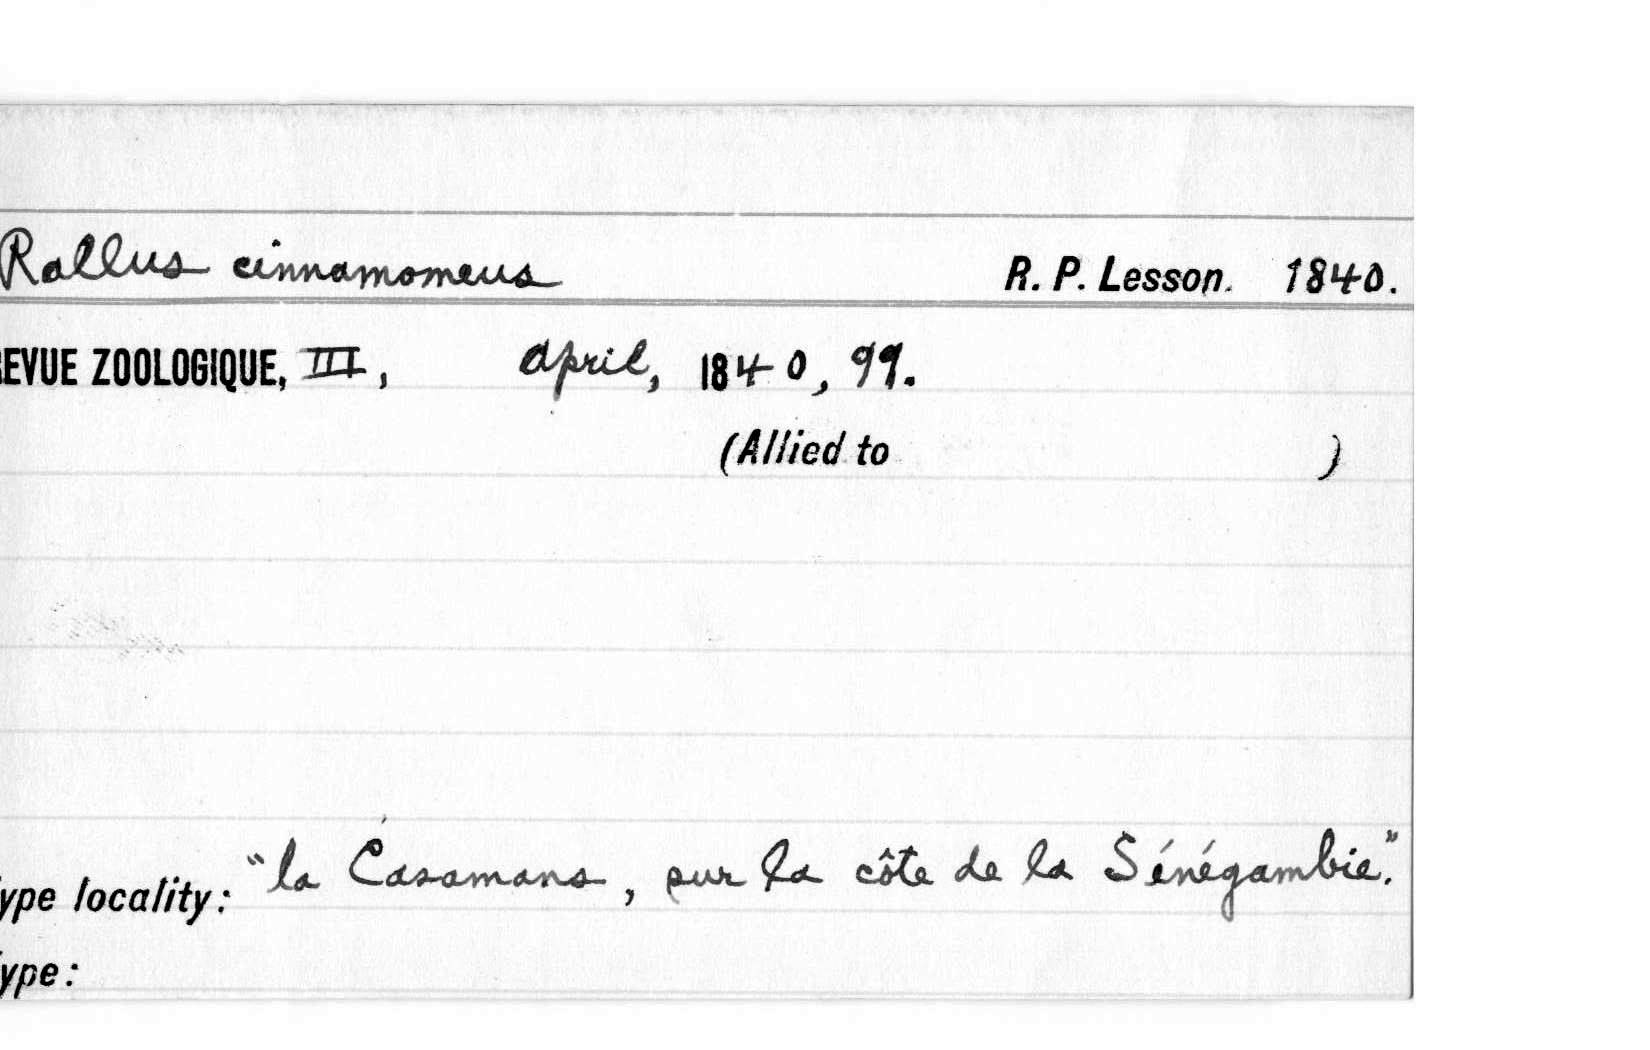 Rallus cinnamomeus R. P. Lesson. 1840.
EVUE ZOOLOGIQUE, III, April, 1840, 99.
(Allied to )
ype locality: "la Casamans, sur la côte de la Sénégambie."
ype: